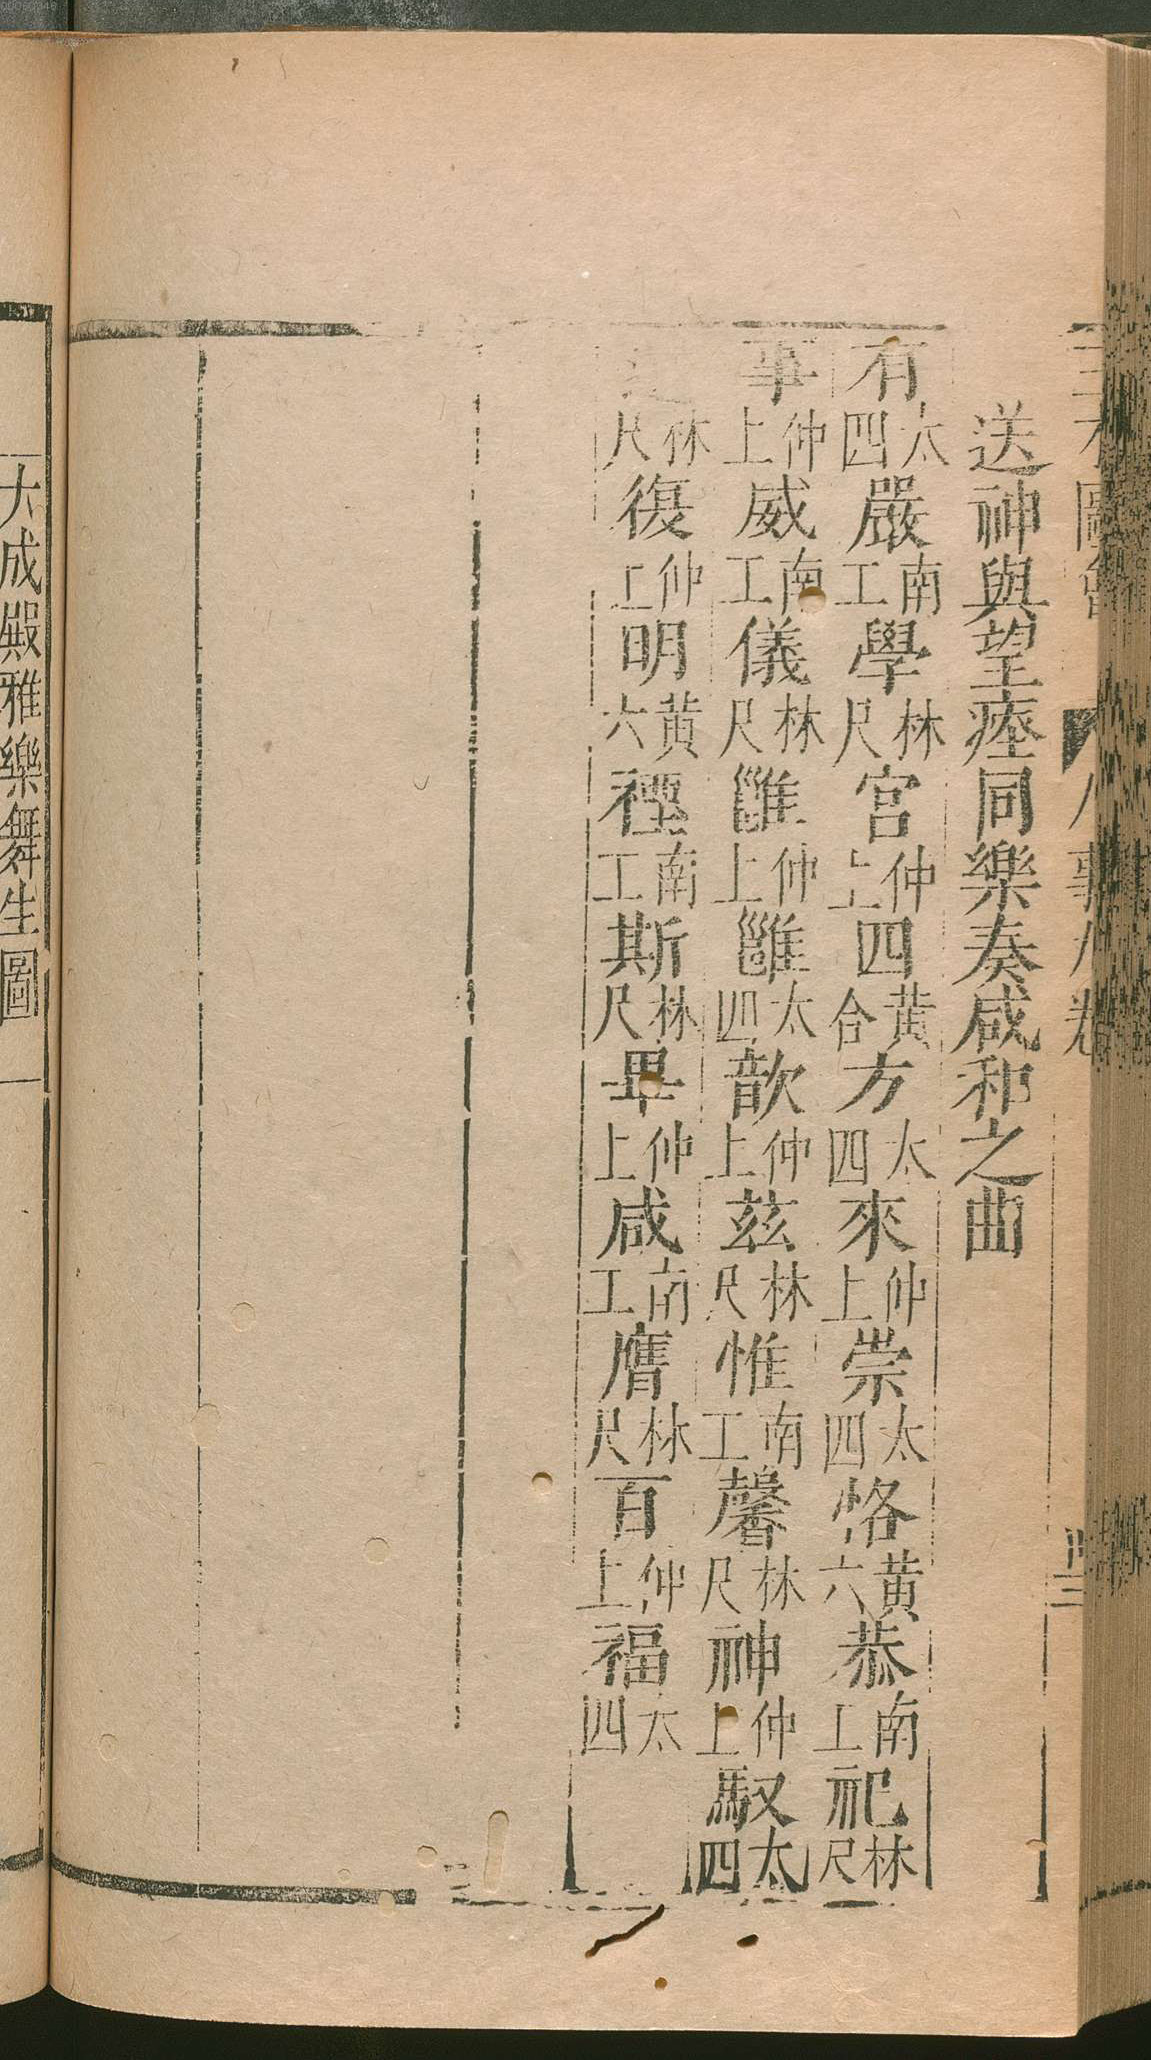 三才圖會 人事八卷
送神與望瘞同樂奏咸和之曲
有太四嚴南工學林尺宮仲上四黃合方太四來仲上崇太四恪黃六恭南工祀林尺
事仲上威南工儀林尺雝仲上雝太四歆仲上茲林尺惟南工馨林尺神仲上馭太四
林尺復仲上明黃六禋南工斯林尺畢仲上咸南工膺林尺百仲上福太四
大成殿雅樂舞生圖